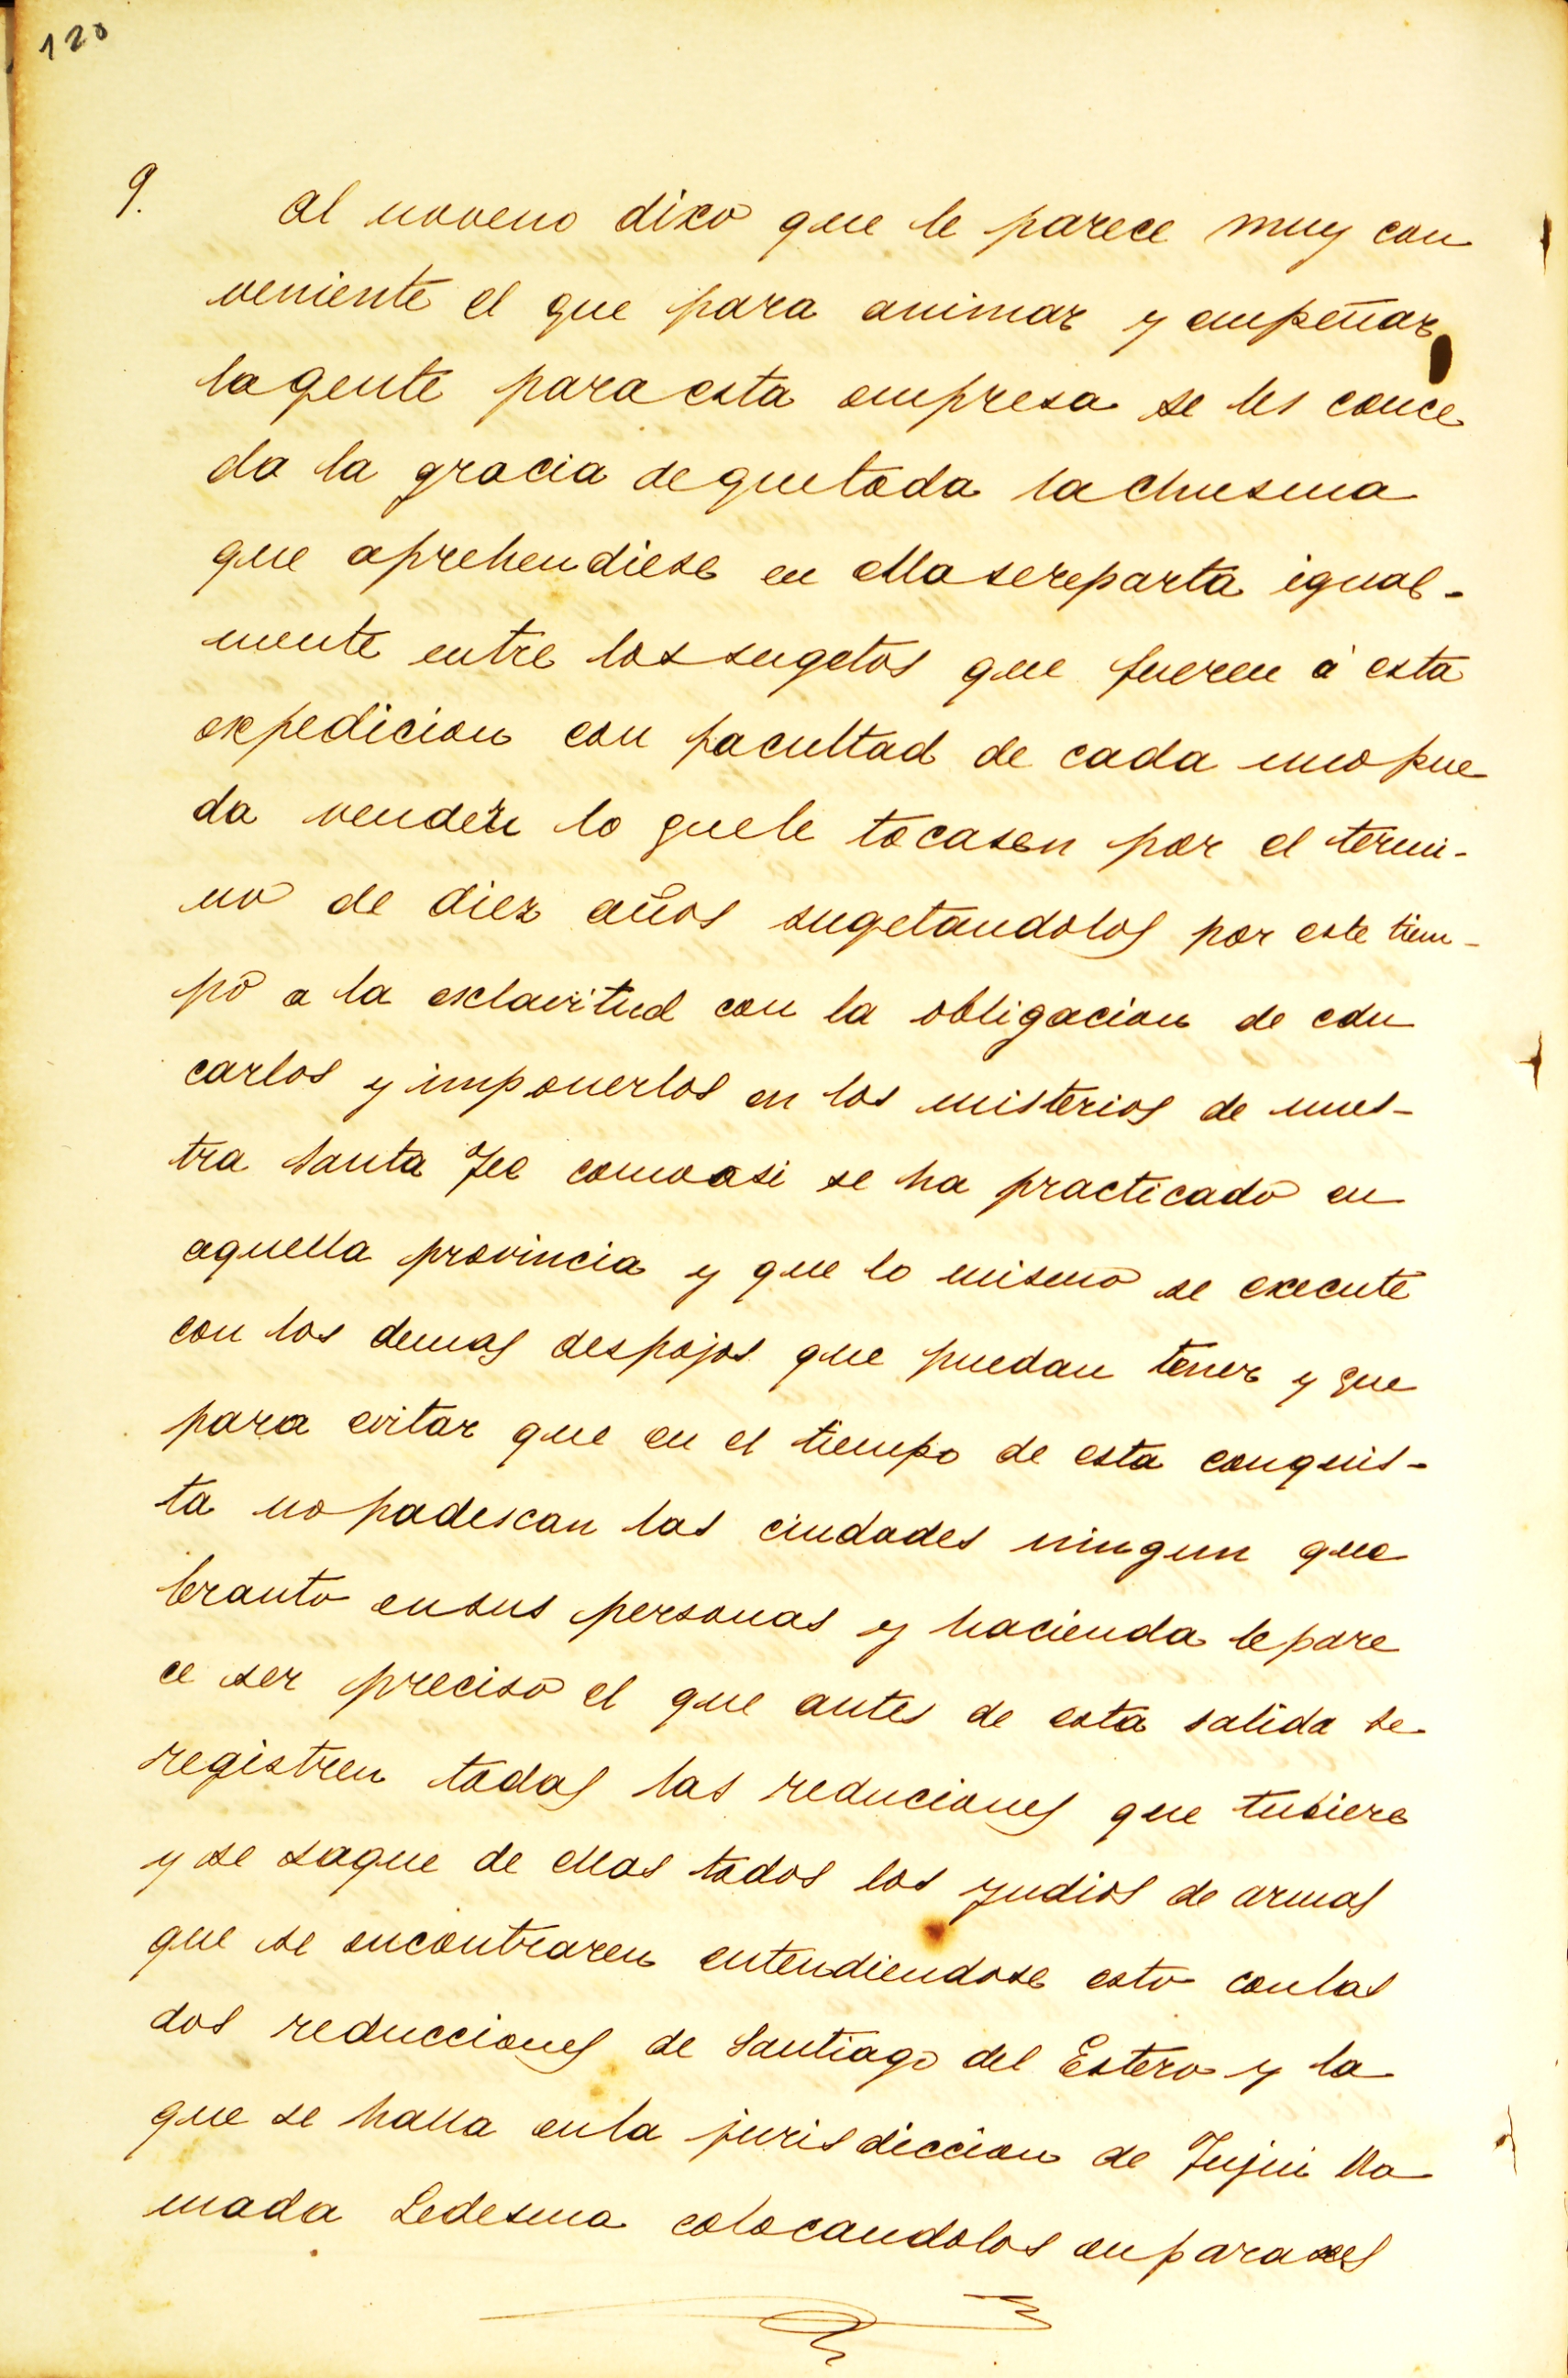 120
9. Al noveno dixo que le parece muy con
veniente el que para animar y empeñar
la gente para esta empresa se les conce
da la gracia de que toda la chusma
que aprehendiese en ella se reparta igual-
mente entre los sugetos que fueren á esta
expedicion con facultad de cada uno pue
da vender lo que le tocasen por el termi-
no de diez años sugetandolos por este tiem-
po a la esclavitud con la obligacion de edu
carlos y imponerlos en los misterios de nues-
tra Santa Fee como asi se ha practicado en
aquella provincia y que lo mismo se execute
con los demas despojos que puedan tener y que
para evitar que en el tiempo de esta conquis-
ta no padescan las ciudades ningun que
branto en sus personas y hacienda le pare
ce ser preciso el que antes de esta salida se
registren todas las reduciones que tubiere
y se saque de ellas todos los Yndios de armas
que se encontraren entendiendose esto con las
dos reducciones de Santiago del Estero y la
que se halla en la jurisdiccion de Jujui lla
mada Ledesma colocandolos en paraxes